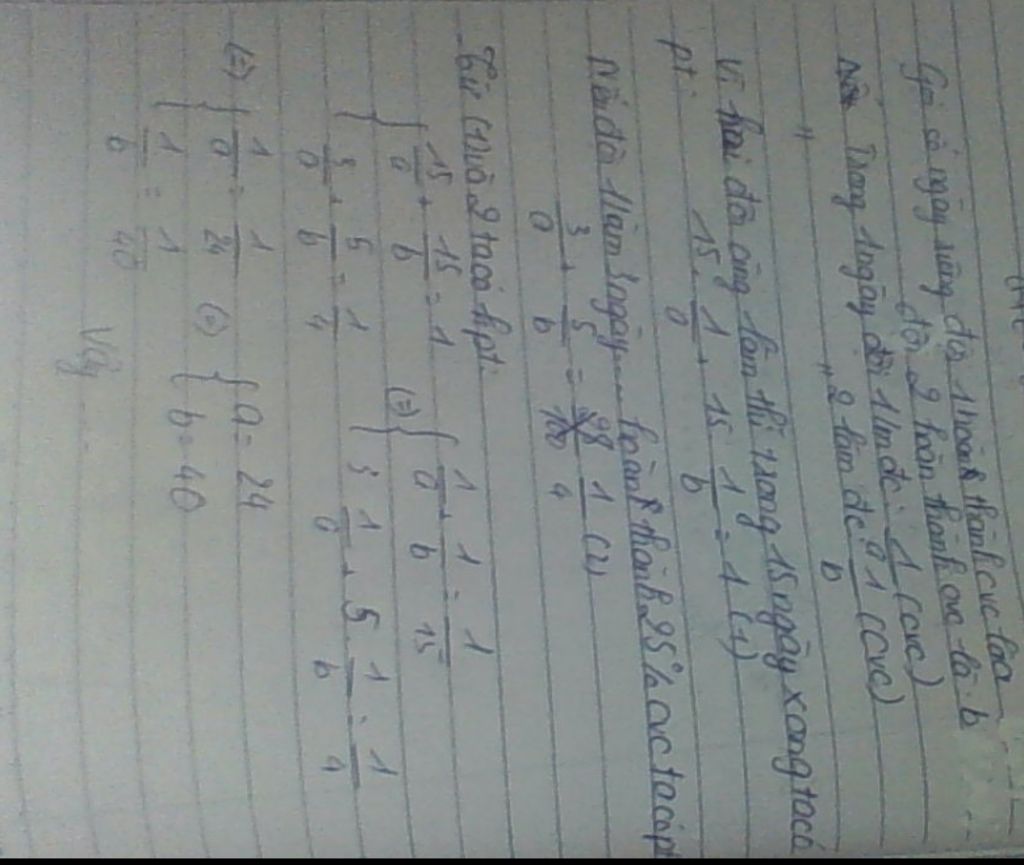 Gọi số ngày riêng đội 1 hoành thành cvc là a
đội 2 hoàn thành cvc là b
Trong 1 ngày đội 1 lm đc: 1/a (cvc)
" " 2 làm đc 1/b (cvc)
Vì hai đội cùng làm thì trong 15 ngày xong ta có
pt: 15. 1/a + 15 1/b = 1 (1)
Nếu đội 1 làm 3 ngày.... hoành thành 25% cvc ta có pt
3/a + 5/b = 1/4 (2)
Từ (1) và 2 ta có hpt:
{ 15/a + 15/b = 1 (=) { 1/a + 1/b = 1/15
{ 3/a + 5/b = 1/4 { 3 1/a + 5. 1/b = 1/4
(=) { 1/a = 1/24 (=) { a = 24
{ 1/b = 1/40 { b = 40
Vậy ....